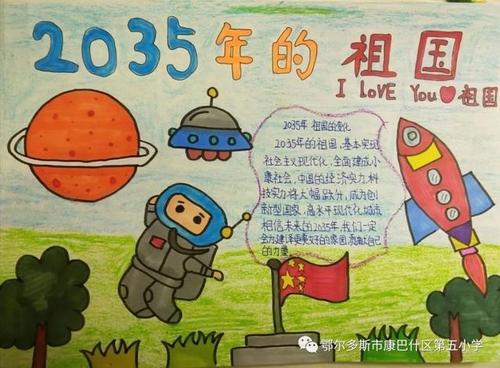 2035年的祖国
I LOVE You 祖国
2035年 祖国的变化
2035年的祖国,基本实现
社会主义现代化,全面建成小
康社会,中国的经济实力,科
技实力将大幅跃升,成为创
新型国家,高水平现代化城市
相信未来的2035年,我们一定
会为建译更美好的家园贡献自己
的力量
鄂尔多斯市康巴什区第五小学